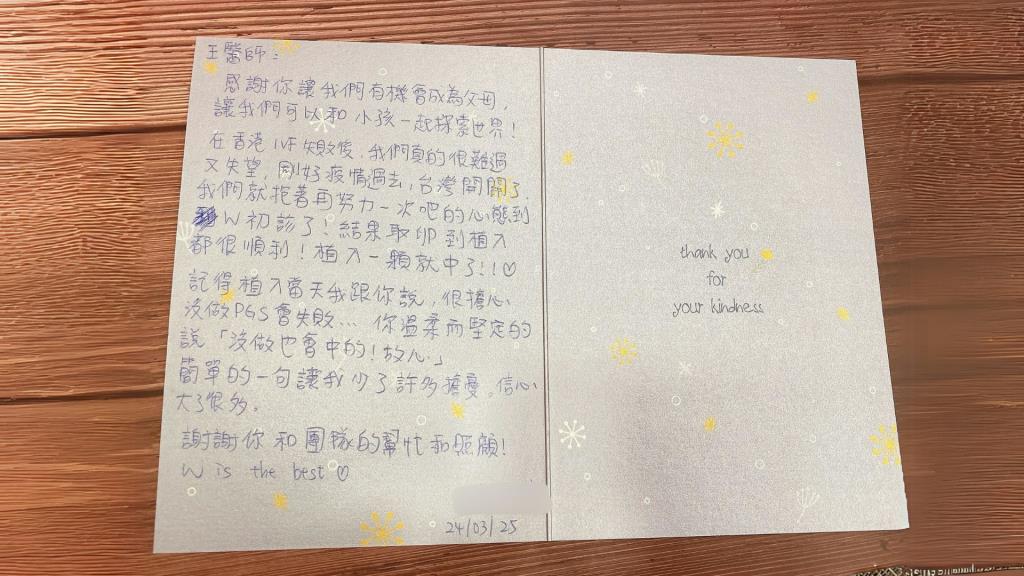 王醫師：
感謝你讓我們有機會成為父母，
讓我們可以和小孩一起探索世界！
在香港 IVF 失敗後，我們真的很難過
又失望，剛好疫情過去，台灣開關了，
我們就抱著再努力一次吧的心態到
W 初診了！結果取卵到植入
都很順利！植入一顆就中了!!♡
記得植入當天我跟你說，很擔心
沒做PGS會失敗... 你溫柔而堅定的
說「沒做也會中的！放心」
簡單的一句讓我少了許多擔憂，信心
大了很多。
謝謝你和團隊的幫忙和照顧！
W is the best ♡
24/03/25
thank you
for
your kindness